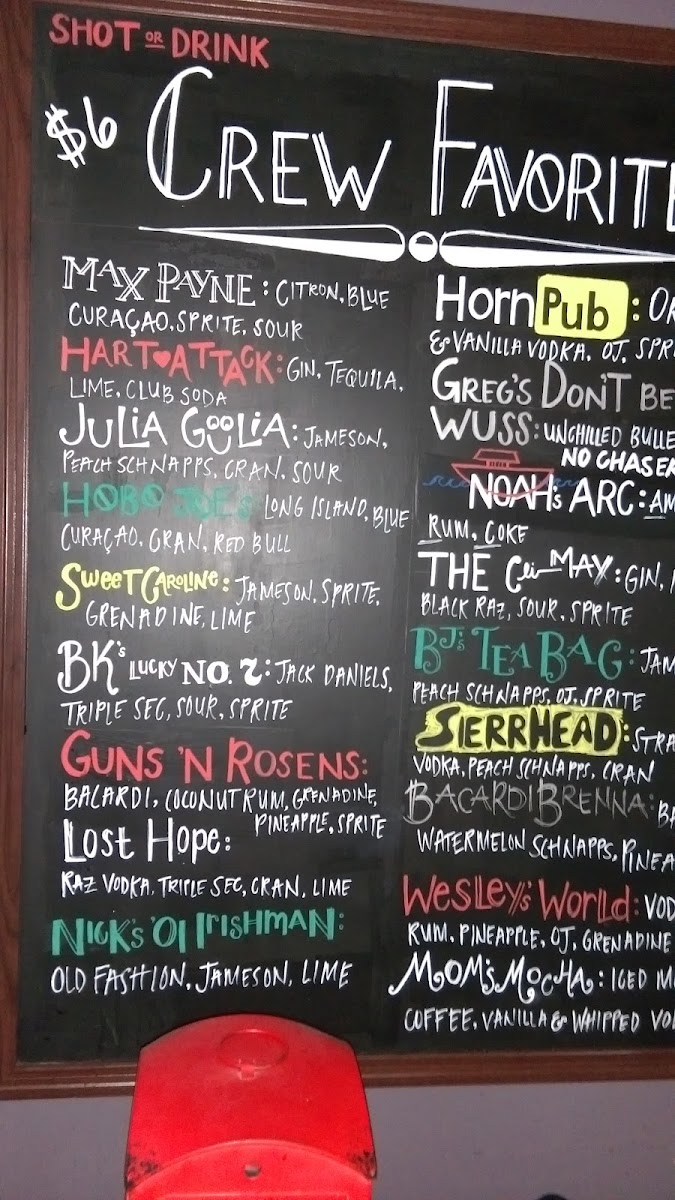 SHOT OR DRINK
$6 CREW FAVORITE
MAX PAYNE: CITRON, BLUE
CURAÇAO, SPRITE, SOUR
HART♥ATTACK: GIN, TEQUILA,
LIME, CLUB SODA
JULIA GOOLIA: JAMESON,
PEACH SCHNAPPS, CRAN, SOUR
HOBO JOE'S LONG ISLAND, BLUE
CURAÇAO, CRAN, RED BULL
SWEET CAROLINE: JAMESON, SPRITE,
GRENADINE, LIME
BK'S LUCKY NO. 7: JACK DANIELS,
TRIPLE SEC, SOUR, SPRITE
GUNS 'N ROSENS:
BACARDI, COCONUT RUM, GRENADINE,
PINEAPPLE, SPRITE
LOST HOPE:
RAZ VODKA, TRIPLE SEC, CRAN, LIME
NICK'S 'OL IRISHMAN:
OLD FASHION, JAMESON, LIME
HornPub: OR
& VANILLA VODKA, OJ, SPR
GREG'S DON'T BE
WUSS: UNCHILLED BULLE
NO CHASER
NOAH'S ARC: AM
RUM, COKE
THE Cli-MAY: GIN,
BLACK RAZ, SOUR, SPRITE
BJ'S TEA BAG: JAM
PEACH SCHNAPPS, OJ, SPRITE
SIERRHEAD: STRA
VODKA, PEACH SCHNAPPS, CRAN
BACARDI BRENNA: BA
WATERMELON SCHNAPPS, PINEA
WESLEY'S WORLD: VOD
RUM, PINEAPPLE, OJ, GRENADINE
MOM'S MOCHA: ICED M
COFFEE, VANILLA & WHIPPED VO